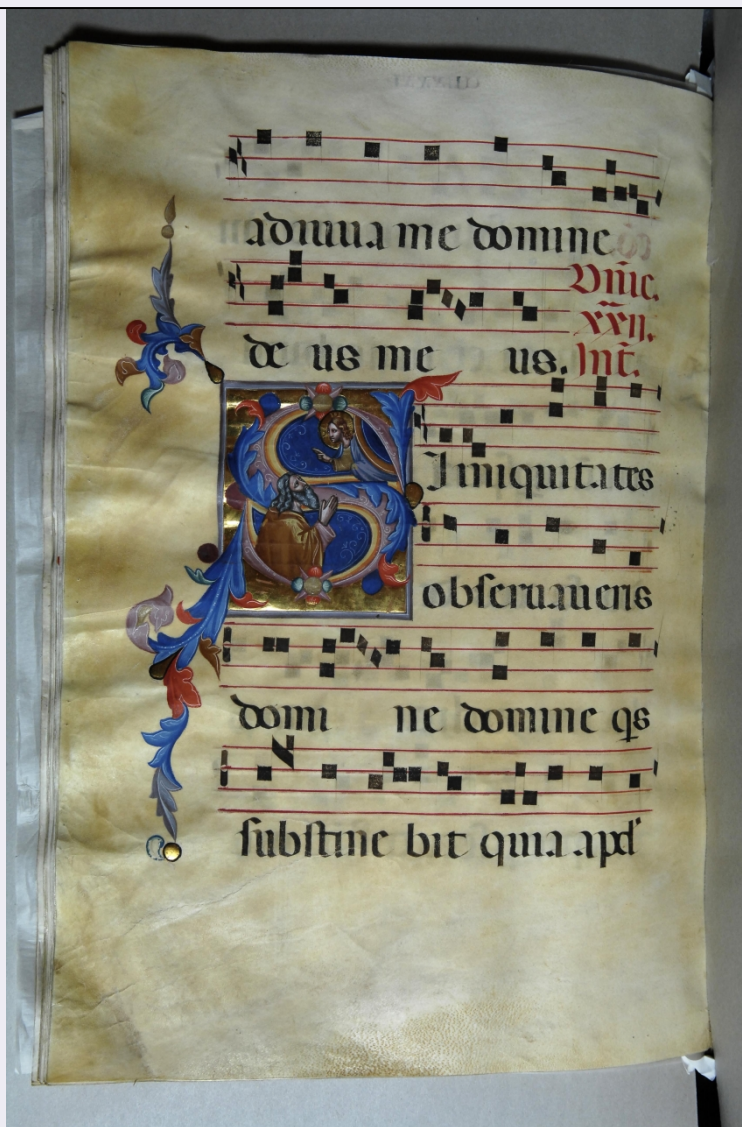 adiuua me domine
Dn̄ic.
de us me us.
xxij.
Int̄.
SI iniquitates
obseruaueris
domi ne domine q̄s
substine bit quia apd'